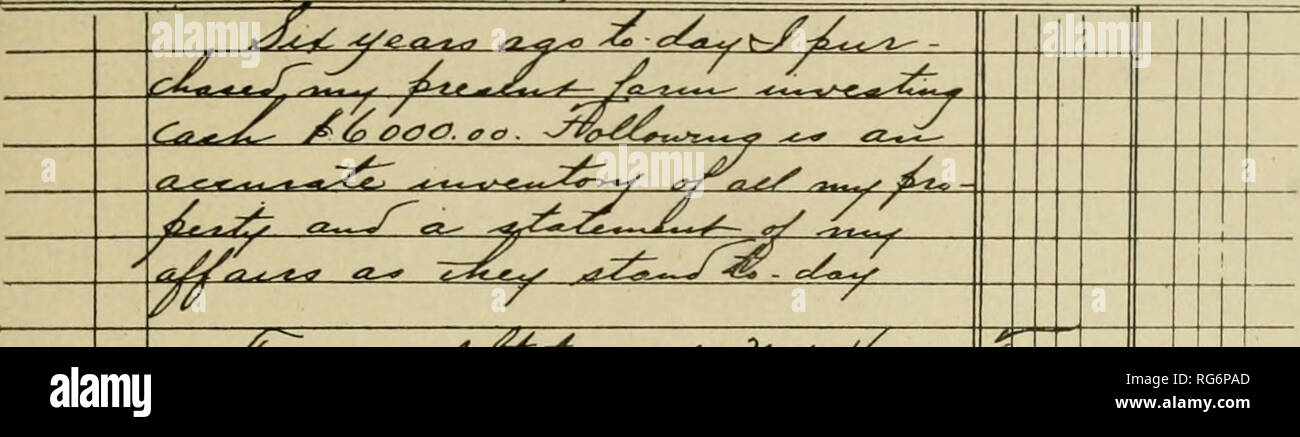 Six years ago to-day I pur-
chased my present farm investing
cash $6000.00. Following is an
accurate inventory of all my pro-
perty and a statement of my
affairs as they stand to-day
alamy
Image ID: RG6PAD
www.alamy.com